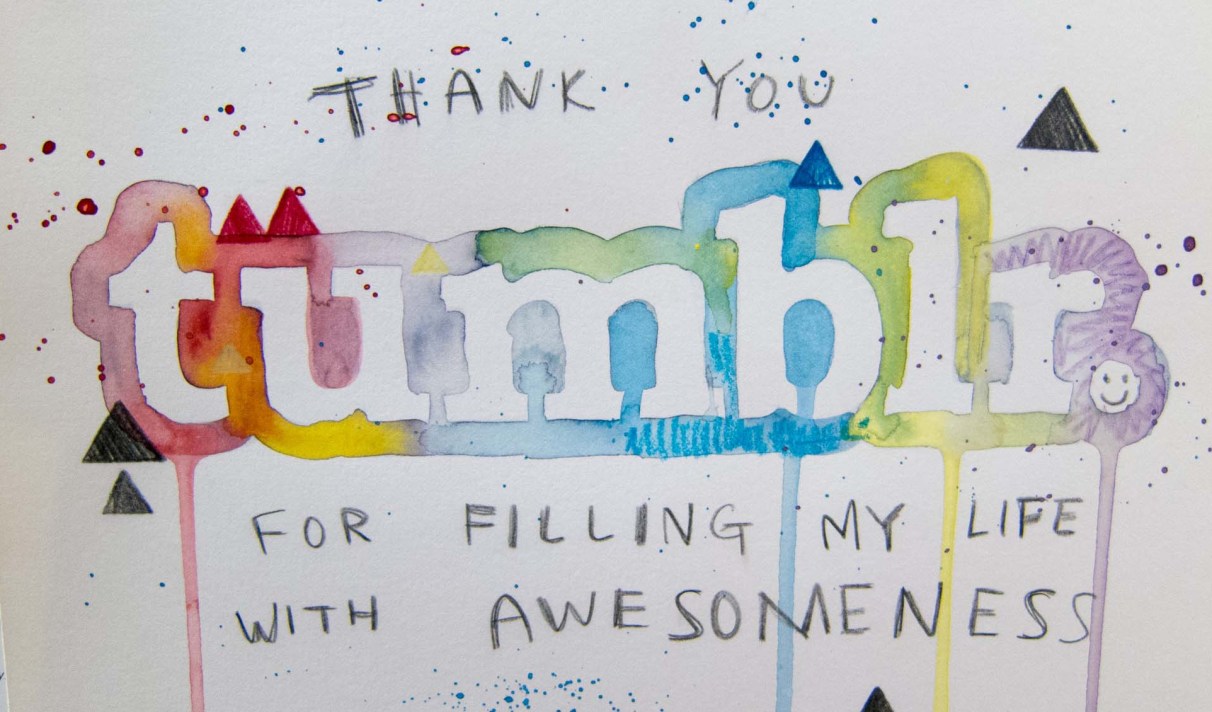 THANK YOU
tumblr
FOR FILLING MY LIFE
WITH AWESOMENESS